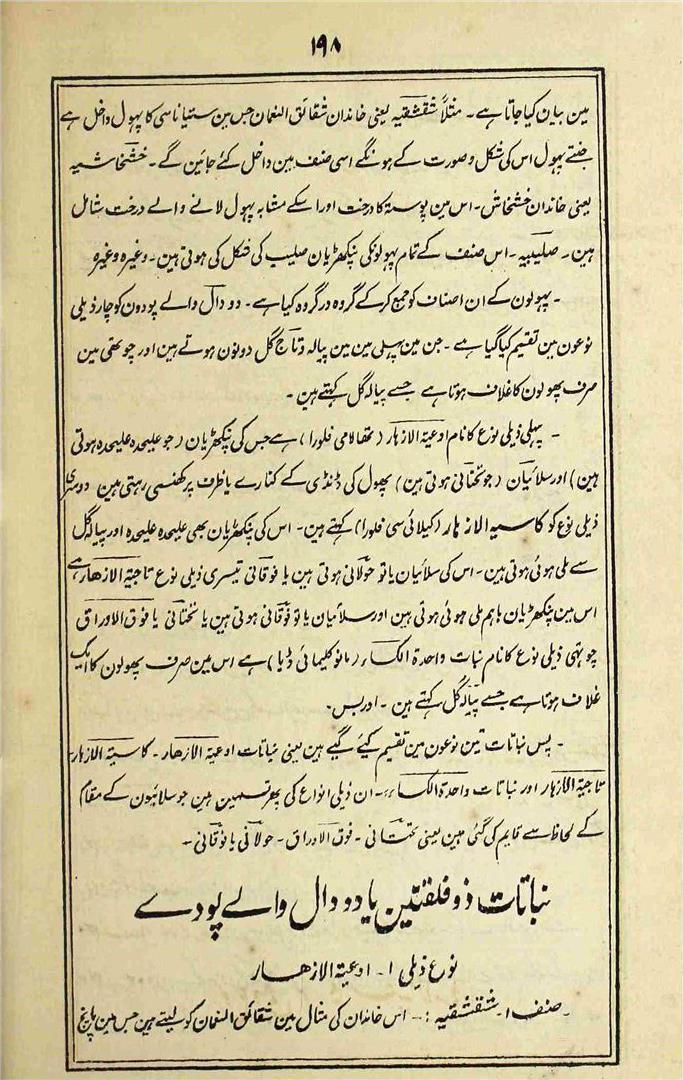 ۱۹۸
مین بیان کیا جاتا ہے۔ مثلاً شقشقیہ یعنی خاندان شقائق النعمان جس مین ستیاناسی کا پہول داخل ہے
جتنے پہول اس کی شکل و صورت کے ہونگے اسی صنف مین داخل کئے جائین گے۔ خشخاشیہ
یعنی خاندان خشخاش۔ اس مین پوستہ کا درخت اور اسکے مشابہ پہول لانے والے درخت شامل
ہین۔ صلیبیہ۔ اس صنف کے تمام پہولونکی پنکھڑیان صلیب کی شکل کی ہوتی ہین۔ وغیرہ وغیرہ
۔ پہولون کے ان اصناف کو جمع کر کے گروہ در گروہ کیا ہے۔ دو دال والے پودون کو چار ذیلی
نوعون مین تقسیم کیا گیا ہے۔ جن مین پہلی تین مین پیالہ و تاج گل دونون ہوتے ہین اور چوتھی مین
صرف پھولون کا غلاف ہوتا ہے جسے پیالہ گل کہتے ہین۔
۔ پہلی ذیلی نوع کا نام اوعیۃ الازہار (تھالامی فلورا) ہے جس کی پنکھڑیان (جو علیحدہ علیحدہ ہوتی
ہین) اور سلائیان (جو تحتانی ہوتی ہین) پھول کی ڈنڈی کے کنارے یا ظرف پر کھنسی رہتی ہین دوسری
ذیلی نوع کو کاسیۃ الازہار (کیلائی سی فلورا) کہتے ہین۔ اس کی پنکھڑیان بھی علیحدہ علیحدہ اور پیالہ گل
سے ملی ہوئی ہوتی ہین۔ اس کی سلائیان یا تو حولانی ہوتی ہین یا فوقانی تیسری ذیلی نوع تاجیۃ الازہار ہے
اس مین پنکھڑیان باہم ملی ہوئی ہوتی ہین اور سلائیان یا تو فوقانی ہوتی ہین یا تحتانی یا فوق الاوراق
چوتہی ذیلی نوع کا نام نبات واحدۃ الکساء (مانوکلیمائی ڈیا) ہے اس مین صرف پھولون کا ایک
غلاف ہوتا ہے جسے پیالہ گل کہتے ہین۔ اور بس۔
۔ پس نباتات تین نوعون مین تقسیم کیے گئے ہین یعنی نباتات اوعیۃ الازہار۔ کاسیۃ الازہار۔
تاجیۃ الازہار اور نباتات واحدۃ الکساء۔ ان ذیلی انواع کی پھر قسمین ہین جو سلائیون کے مقام
کے لحاظ سے قایم کی گئی ہین یعنی تحتانی۔ فوق الاوراق۔ حولانی یا فوقانی۔
نباتات ذو فلقتین یا دو دال والے پودے
نوع ذیلی ۱۔ اوعیۃ الازہار
۔ صنف ۱۔ شقشقیہ :۔ اس خاندان کی مثال مین شقائق النعمان کو لیتے ہین جس مین پانچ